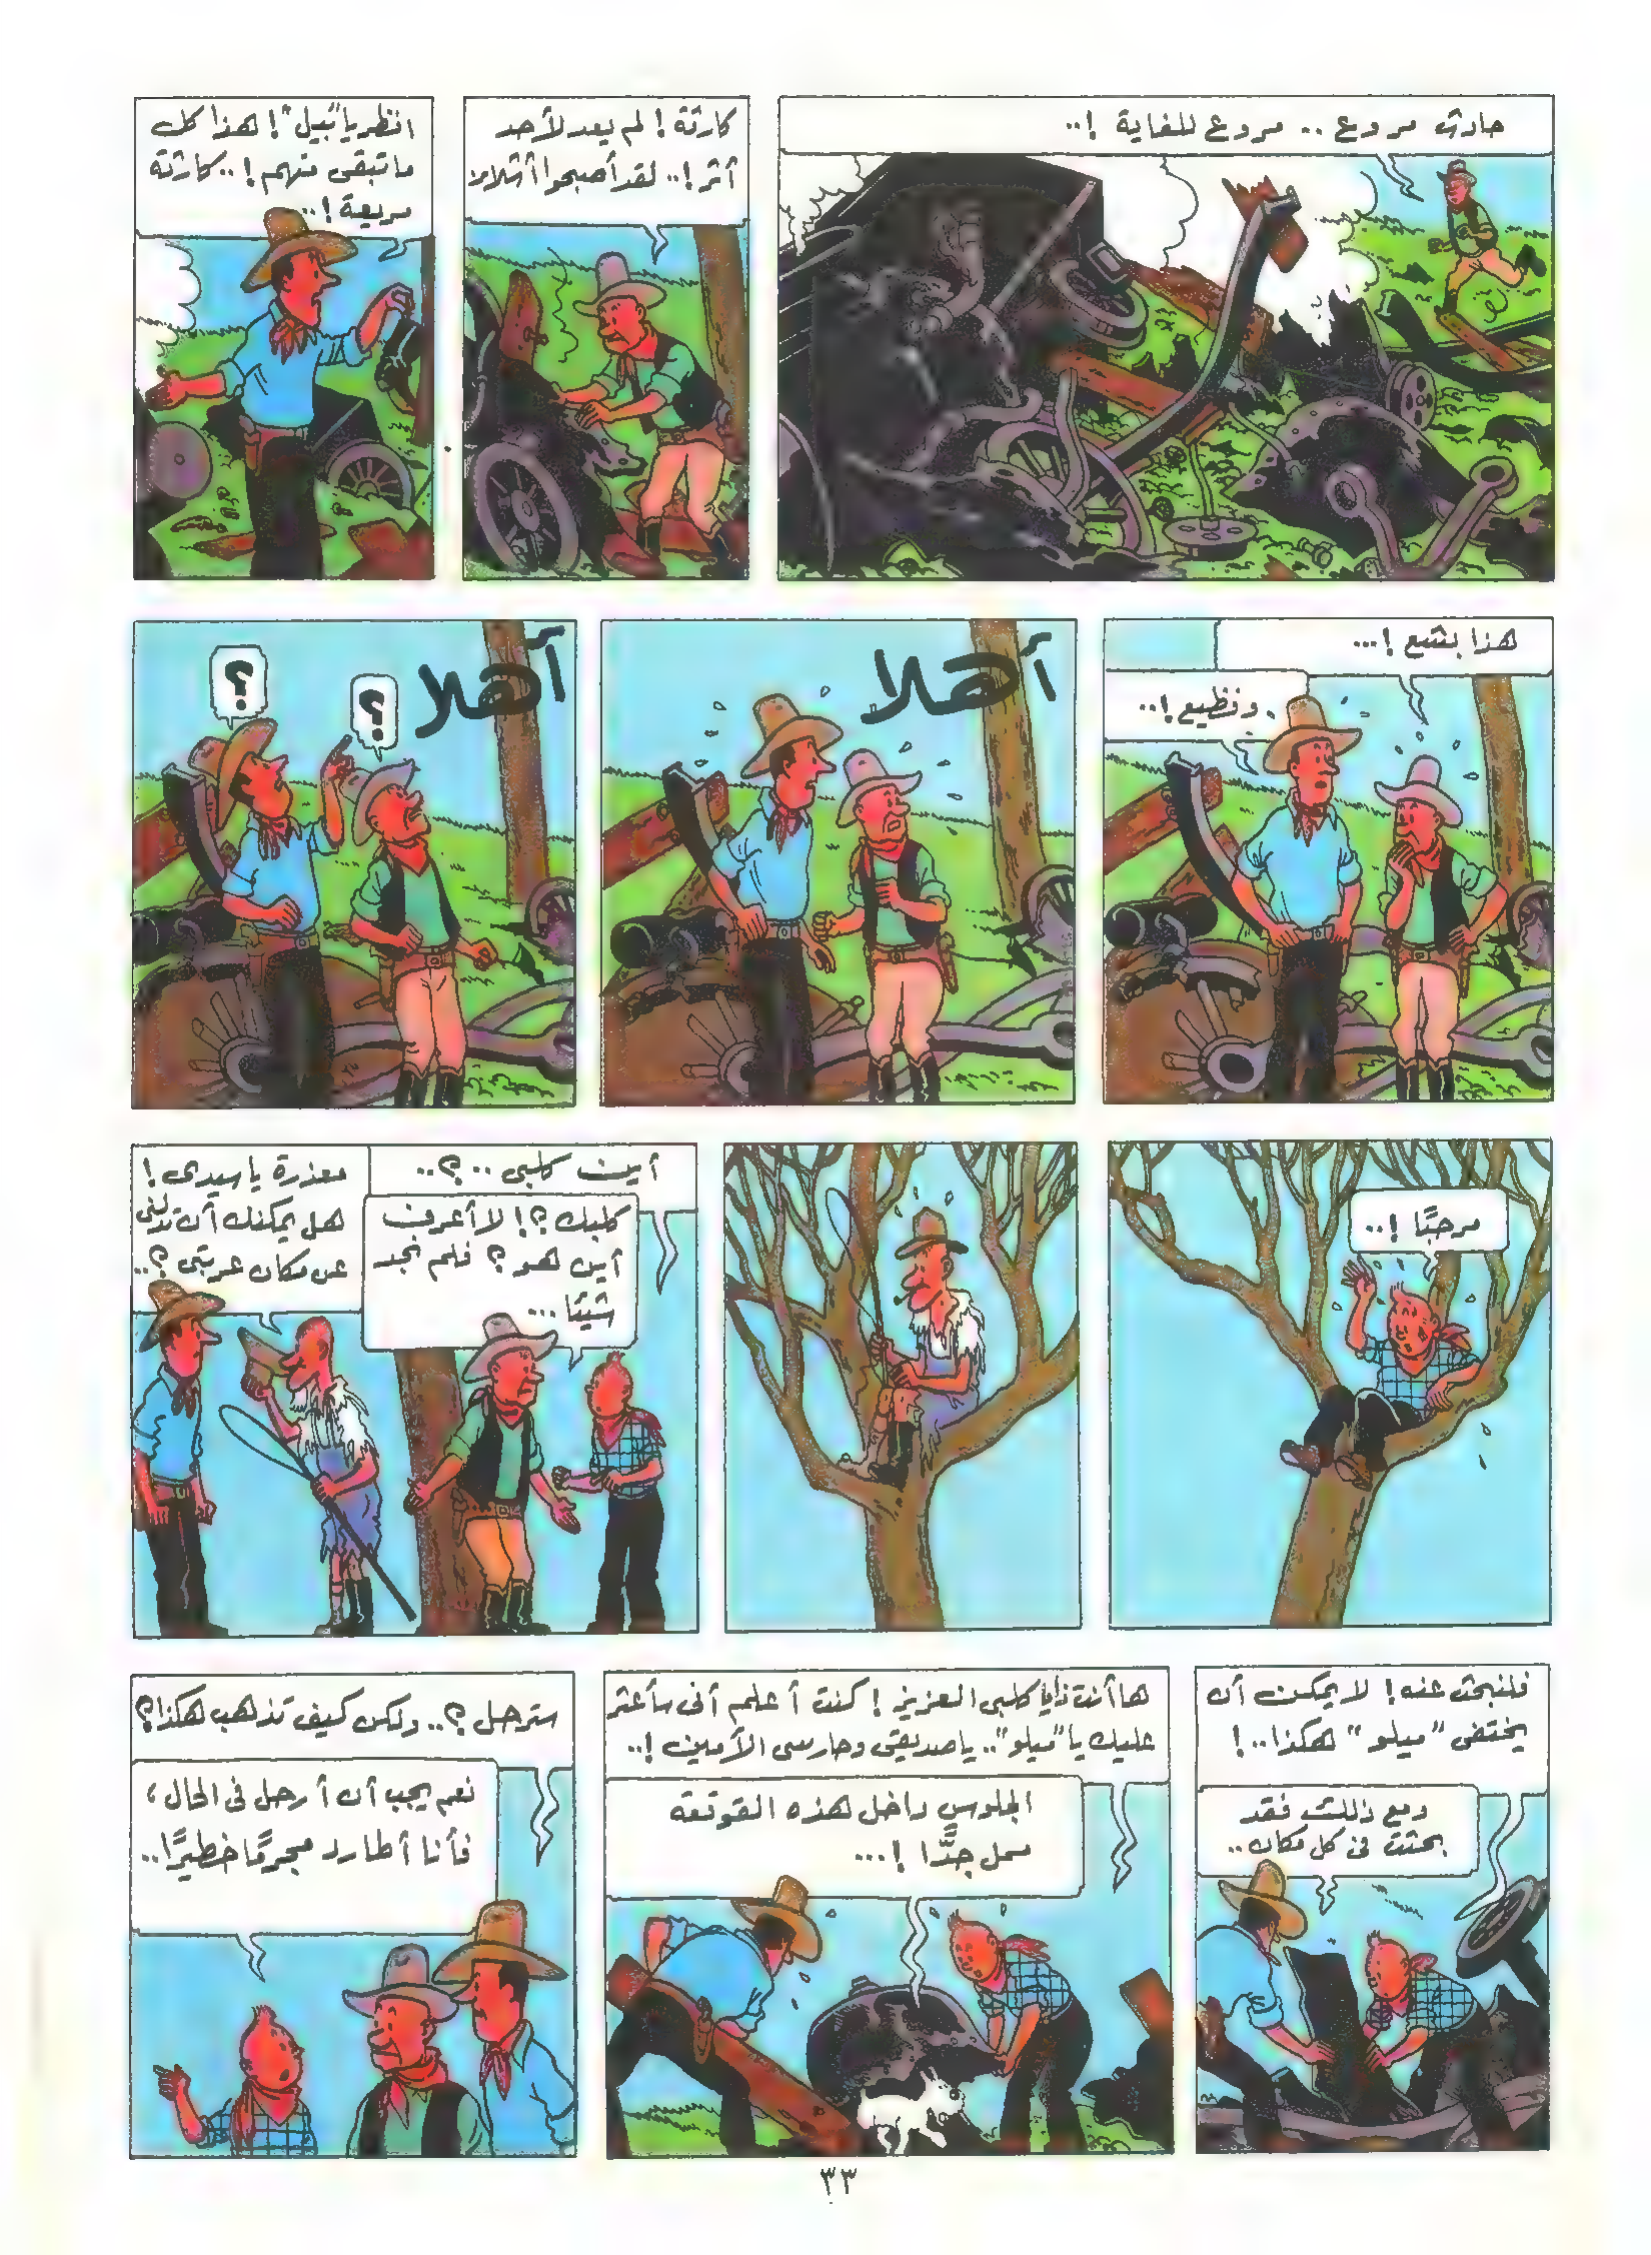 حادث مروع .. مروع للغاية !..
كارثة ! لم يعد لأحد
أثر !.. لقد أصبحوا أشلاء
انظر يا "بيل" ! هذا كل
ما تبقى منهم !.. كارثة
مريعة !..
هذا بشع !...
وفظيع !..
أهلا
أهلا
؟
؟
مرحبًا !..
أين كلبى .. ؟..
كلبك ؟! لا أعرف
أين هو ؟ فلم نجد
شيئا ...
معذرة يا سيدى !
هل يمكنك أن تدلنى
عن مكان عربتى ؟..
فلنبحث عنه ! لا يمكن أن
يختفى "ميلو" هكذا ..!
ومع ذلك فقد
بحثت فى كل مكان ..
ها أنت ذا يا كلبى العزيز ! كنت أعلم أنى سأعثر
عليك يا "ميلو" .. يا صديقى وحارسى الأمين !..
الجلوس داخل هذه القوقعة
ممل جدًّا !...
سترحل ؟.. ولكن كيف تذهب هكذا ؟
نعم يجب أن أرحل فى الحال ،
فأنا أطارد مجرمًا خطيرًا ..
٣٣